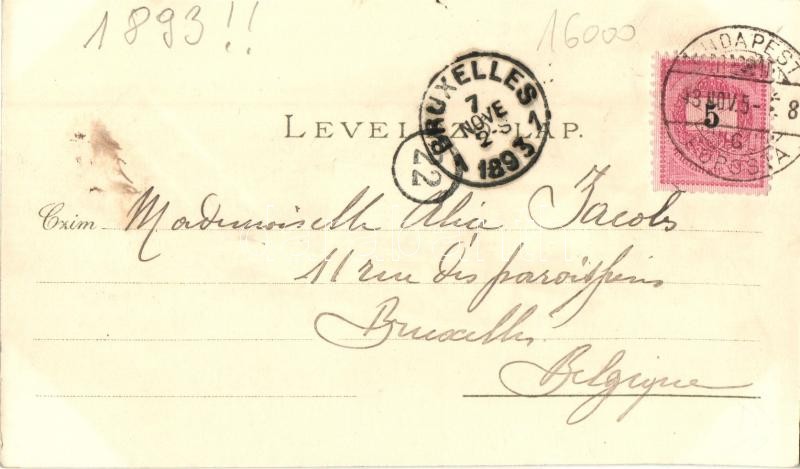 1893!!
16000
BUDAPEST
93 NOV. 5
8
FŐPOSTA
5
BRUXELLES 1
7
NOVE
2-S
1893
22
LEVELEZŐ-LAP.
Czim Mademoiselle Alice Jacobs
11 rue des paroissiens
Bruxelles
Belgique